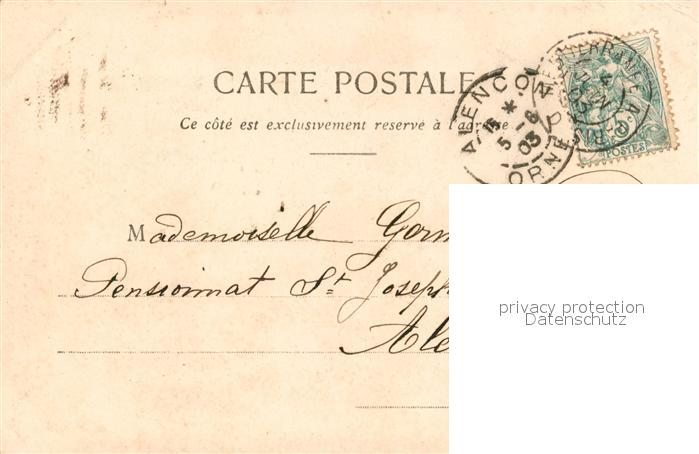 CARTE POSTALE
Ce côté est exclusivement reservé à l'adresse
ALENCON
5 - 6
03
ORNE
POSTES
Mademoiselle
Pensionnat St Joseph
Ale
privacy protection
Datenschutz